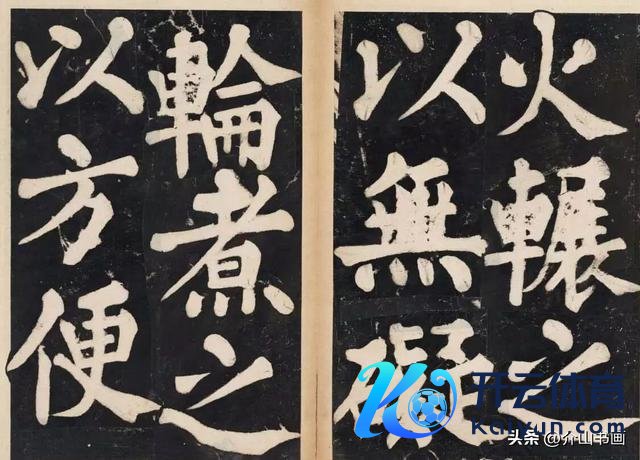 火輾之
以無礙
輪煮之
以方便
开云体育
Kaiyun.com
头条@介山书画